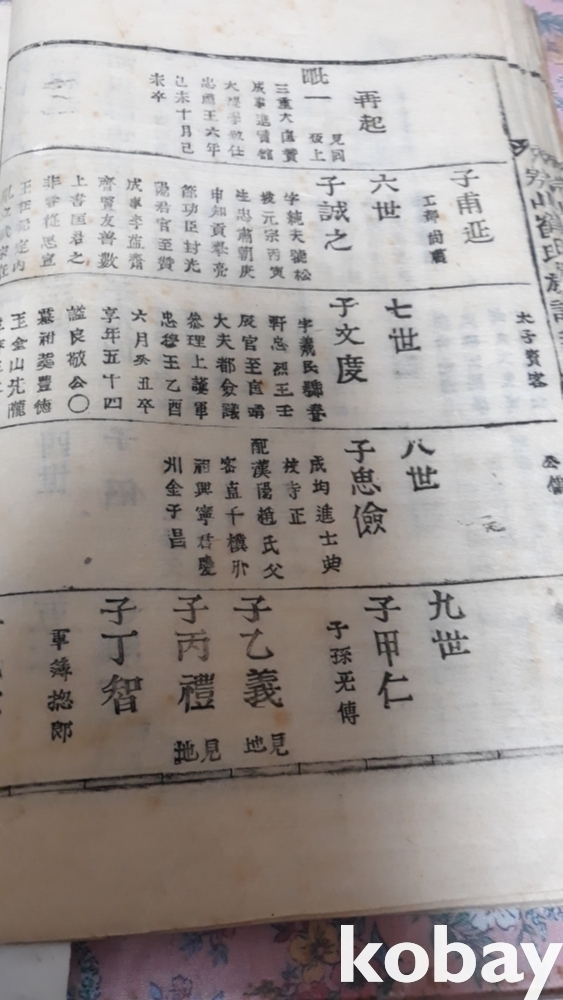 山
氏族譜
再起
一
見同
上
三重大匡贊
成事進賢館
大提學致仕
忠肅王六年
己未十月己
未卒
子甫延
工部尙書
六世
子誠之
字純夫號松
坡元宗丙寅
生忠肅朝庚
申知貢擧亮
節功臣封光
陽君官至贊
成事李益齋
齊賢友善數
上書匡君之
太子賓客
七世
子文度
字羲民號春
軒忠烈王壬
辰官至匡靖
大夫都僉議
參理上護軍
忠穆王乙酉
六月癸丑卒
享年五十四
諡良敬公〇
墓祔葬豊德
王金山先隴
公儒
一元
八世
子思儉
成均進士典
校寺正
配漢陽趙氏父
密直千 外
祖興寧君慶
州金子昌
九世
子甲仁
子孫无傳
子乙義
見地
子丙禮
見地
子丁智
軍簿摠郞
kobay